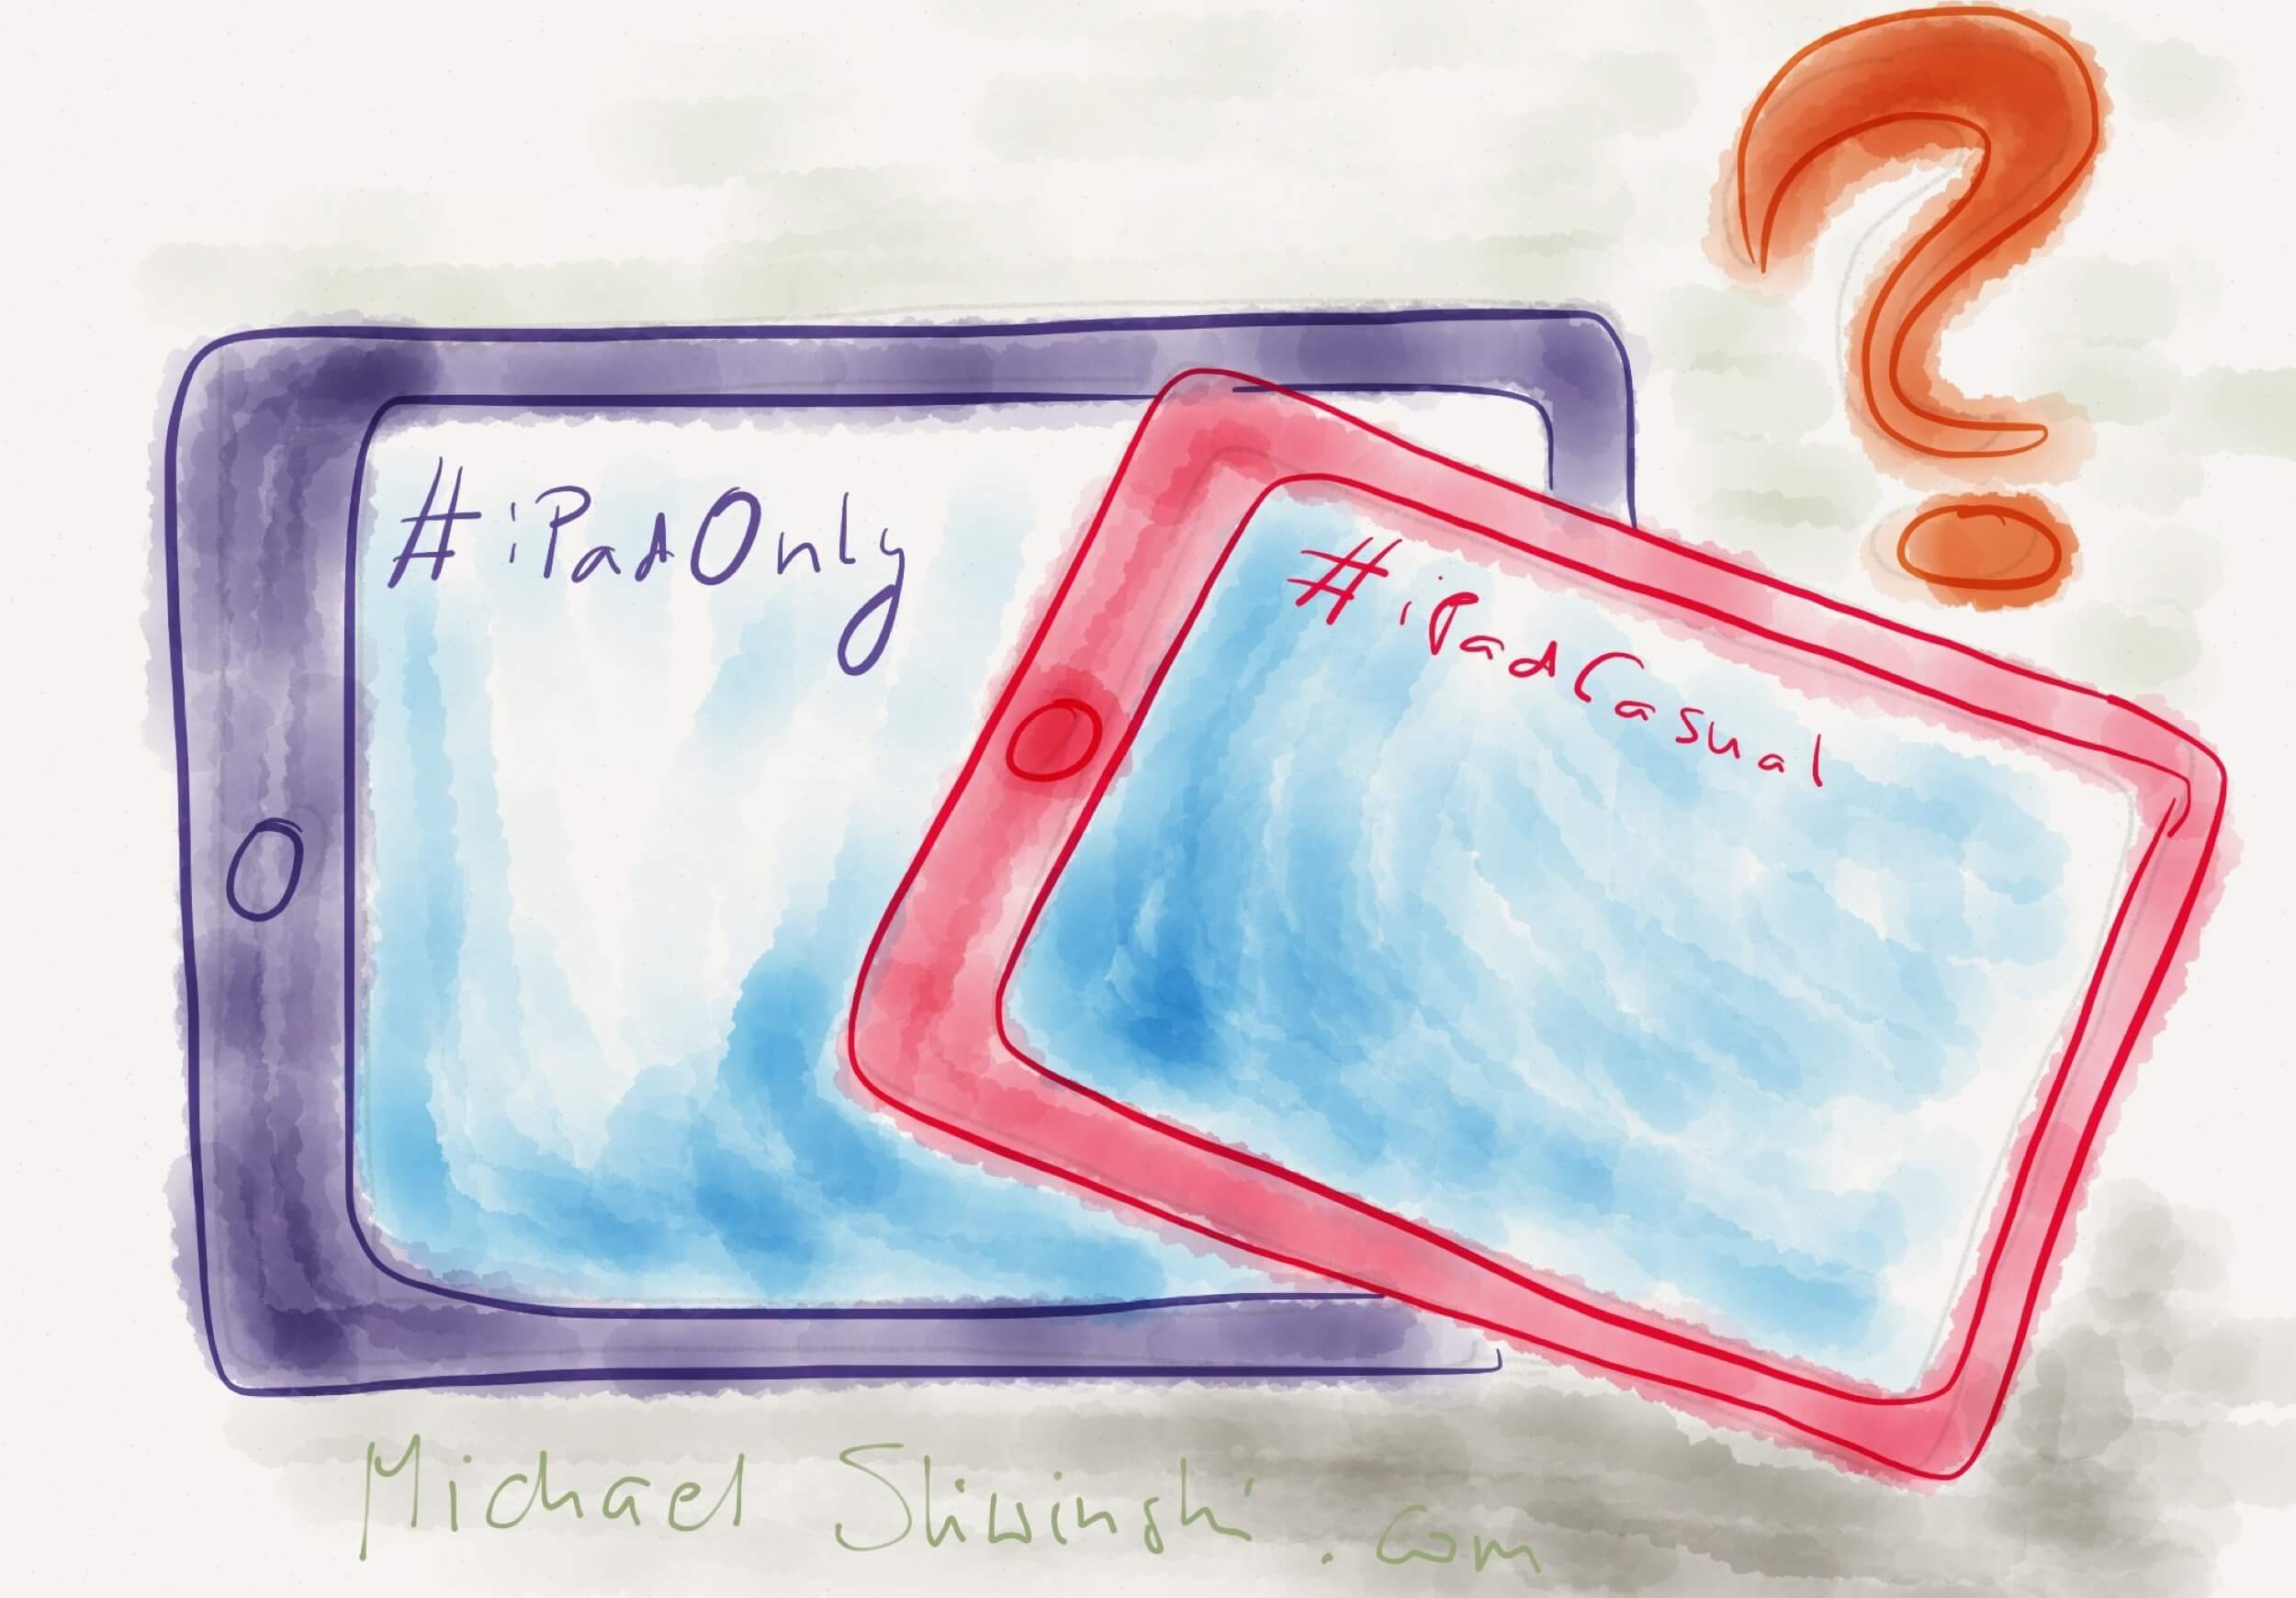 ?
#iPadOnly
#iPadCasual
Michael Sliwinski.com